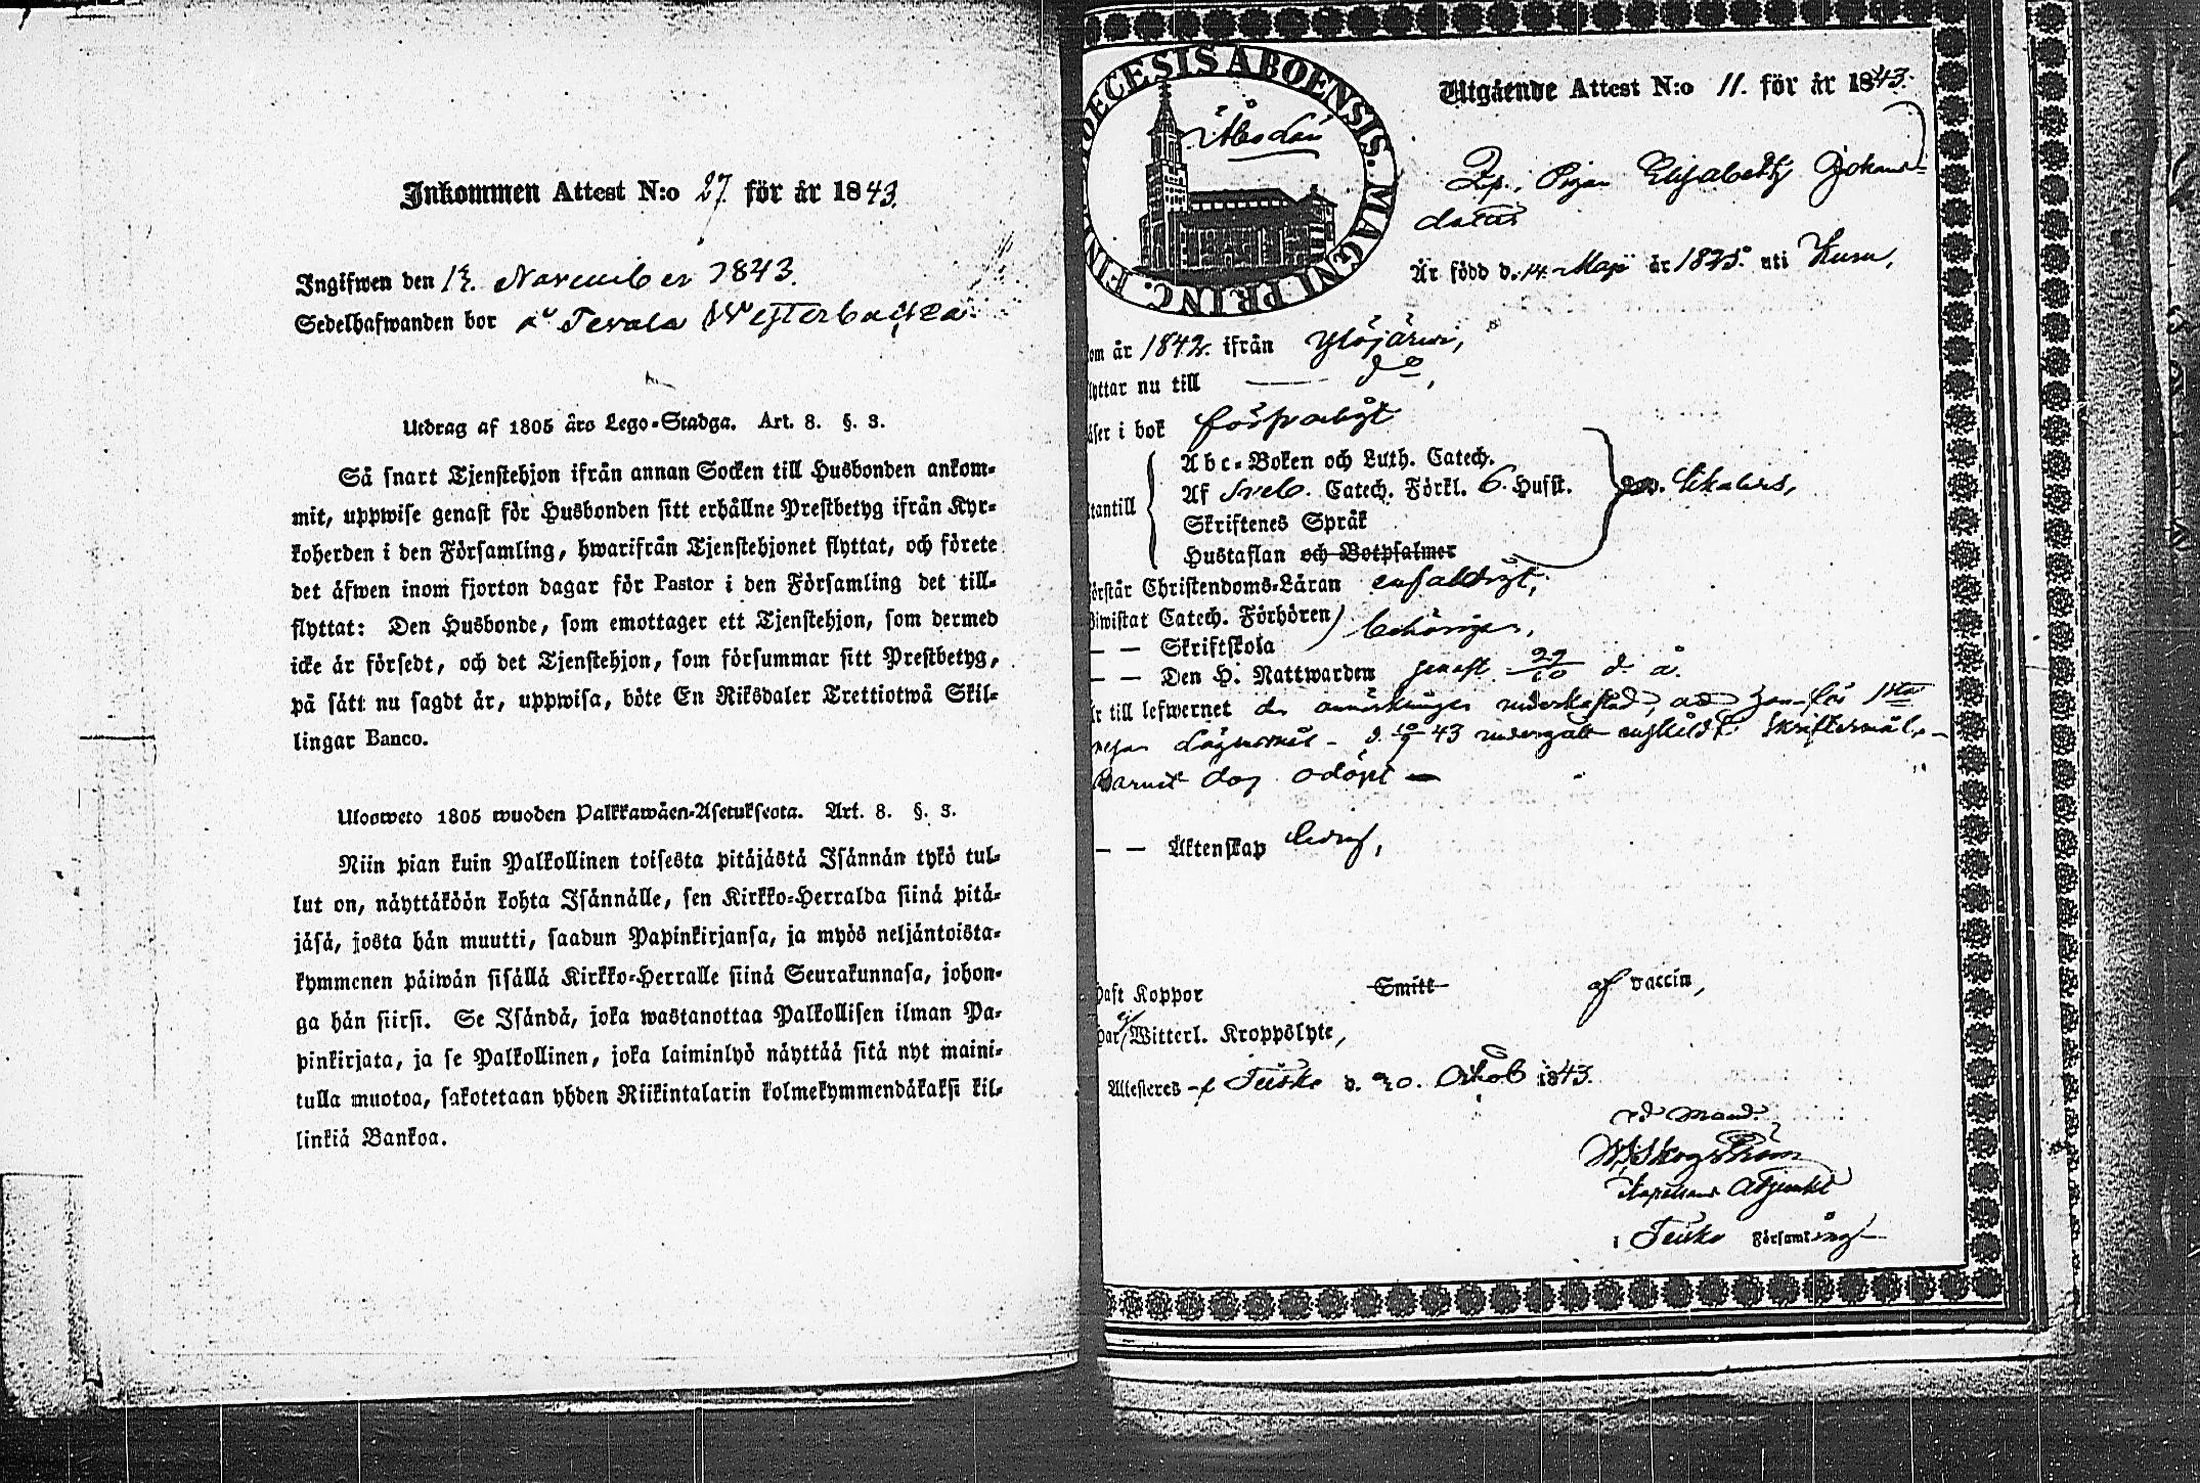 Inkommen Attest N:o 27. för år 1843.
Ingifwen den 12. November 1843.
Sedelhafwanden bor å Terala Westerbacka
Utdrag af 1805 års Lego-Stadga. Art. 8. §. 3.
Så snart Tjenstehjon ifrån annan Socken till Husbonden ankom-
mit, uppwise genast för Husbonden sitt erhållne Prestbetyg ifrån Kyr-
koherden i den Församling, hwarifrån Tjenstehjonet flyttat, och förete
det äfwen inom fjorton dagar för Pastor i den Församling det till-
flyttat: Den Husbonde, som emottager ett Tjenstehjon, som dermed
icke är försedt, och det Tjenstehjon, som försummar sitt Prestbetyg,
på sätt nu sagdt är, uppwisa, böte En Riksdaler Trettiotwå Skil-
lingar Banco.
Ulosweto 1805 wuoden Palkkawäen-Asetuksesta. Art. 8. §. 3.
Niin pian kuin Palkollinen toisesta pitäjästä Isännän tykö tul-
lut on, näyttäköön kohta Isännälle, sen Kirkko-Herralda siinä pitä-
jäsä, josta hän muutti, saadun Papinkirjansa, ja myös neljäntoista-
kymmenen päiwän sisällä Kirkko-Herralle siinä Seurakunnasa, johon-
ga hän siirsi. Se Isändä, joka wastanottaa Palkollisen ilman Pa-
pinkirjata, ja se Palkollinen, joka laiminlyö näyttää sitä nyt maini-
tulla muotoa, sakotetaan yhden Riikintalarin kolmekymmendäkaksi kil-
linkiä Bankoa.
DIOECESIS ABOENSIS. MAGNI PRINC. FIN
Åbo Län
Utgående Attest N:o 11. för år 1843.
Pigan Elisabeth Johans-
dotter
Är född d. 14 Maji år 1825. uti Kuru,
om år 1842. ifrån Ylöjärwi,
lyttar nu till — do,
äser i bok försvarligt
Abc-Boken och Luth. Catech.
Af Sveb. Catech. Förkl. 6. Hufst.
tantill
Skriftenes Språk
Hustaflan och Botpsalmer
örstår Christendoms-Läran enfaldigt,
Biwistat Catech. Förhören
— — Skriftskola behörigen,
— — Den H. Nattwarden senast 22/10 d. å.
r till lefwernet den anmärkningen underkastad, att hon för 1sta
resan lägersmål d. 43 undergått enskildt Skriftermål,
Barnet dog odöpt —
— — Äktenskap ledig,
haft Koppor Smitt af vaccin,
har ej Witterl. Kroppslyte,
Attesteres af Teisko d. 20. Octob 1843.
ad mand.
Skogström
Kapellans Adjunkt
i Teisko Församling